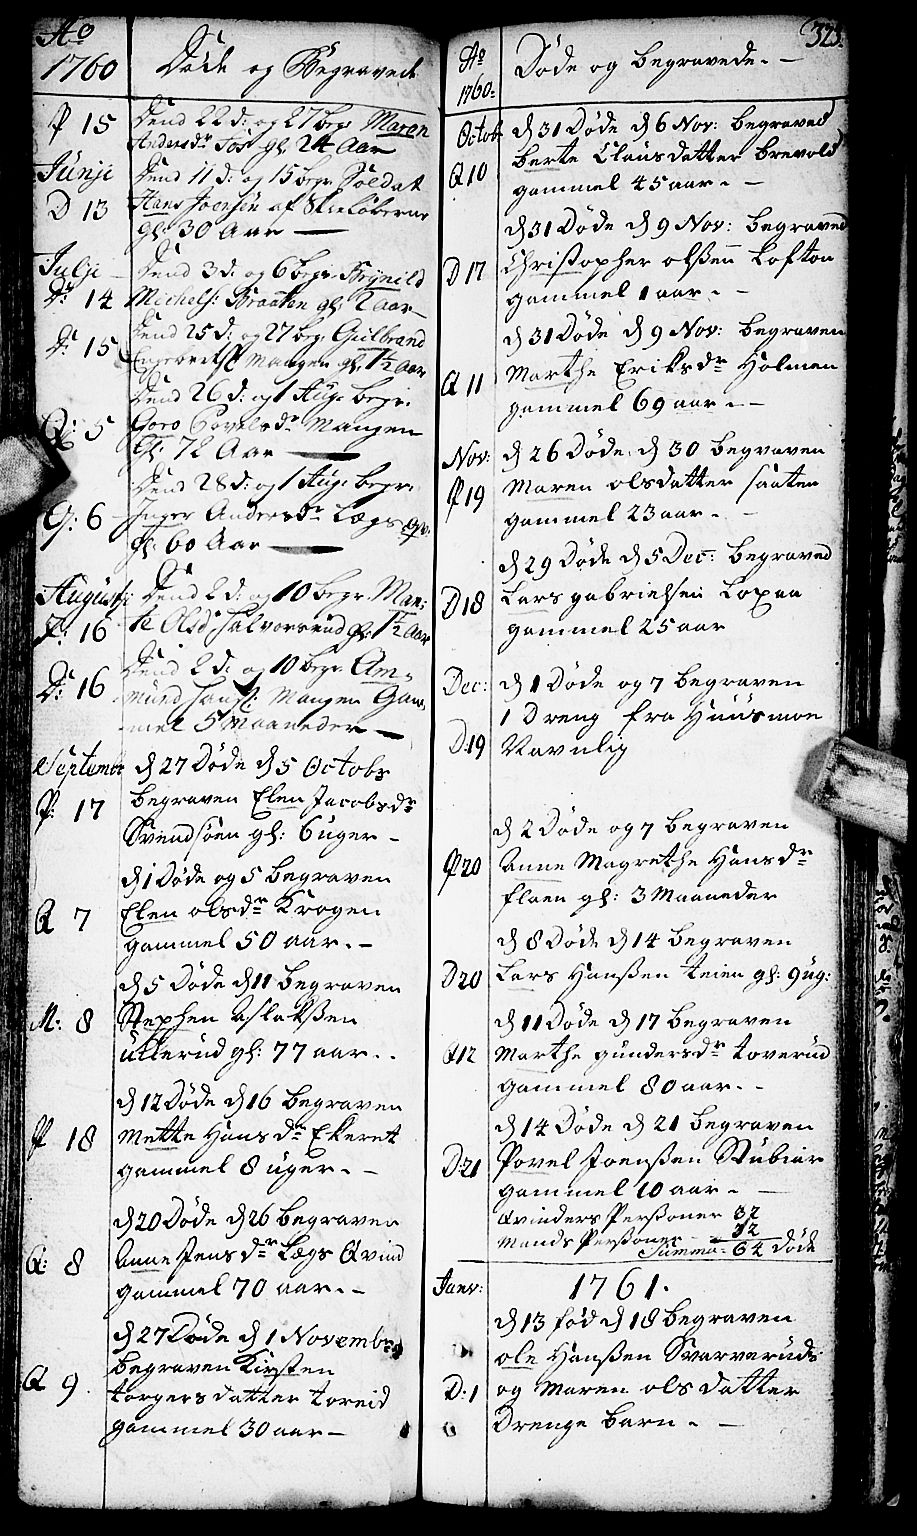 Ao
1760
Døde og Begravede
P 15
Dend 22 d: og 27 begr Maren
Andersdr Fos gl 24 Aar
Junji
D 13
Dend 11 d: og 15 begr Soldat
Hans Joensen af Skieløberne
gl: 30 Aar
Julji
D: 14
Dend 3 d: og 6 begr Brynild
Michels: Braaten gl: 2 aar
D: 15
Dend 25 d: og 27 begr Gulbrand
Mangen gl. 1½ Aar
Q: 5
Dend 26 d: og 1 Aug: begr.
Goro Povelsdr Mangen
gl: 72 Aar
Q: 6
Dend 28 d: og 1 Aug: begr.
Inger Andersdr Lægs Qv:
gl: 60 Aar
Augustj
P: 16
Dend 2 d: og 10 begr. Mar:
te Olsd: Halvorsrud gl: 1½ Aar
D: 16
Dend 2 d: og 10 begr Am-
mund Mangen Gam-
mel 5 Maaneder
September
P: 17
d 27 Døde d 5 Octobr
begraven Elen Jacobsdr
Svendsøen gl: 6 uger
Q 7
d 1 Døde og 5 begraven
Elen olsdr Krogen
gammel 50 aar.
M: 8
d 5 Døde d 11 begraven
Stephen Aslakßen
Ullerud gl: 77 aar.
P 18
d 12 Døde d 16 begraven
Mette Hansdr Ekeret
gammel 8 uger.
Q: 8
d 20 Døde d 26 begraven
Anne Jensdr Lægs Qvind
gammel 70 aar.
Q 9.
d 27 Døde d 1 Novembr
begraven Kirsten
torgersdatter toreid
gammel 30 aar
323.
Ao
1760
Døde og begravede.
Octobr
Q 10
d 31 Døde d 6 Nov: begraved
berte Clausdatter brevold
gammel 45 aar.
D 17
d 31 Døde d 9 Nov: begraved
Christopher olßen Lofton
gammel 1 aar.
Q 11
d 31 Døde d 9 Nov: begraven
Marthe Eriksdr Holmen
gammel 69 aar.
Nov:
P 19
d 26 Døde. d 30 begraven
Maren olsdatter saaten
gammel 23 aar.
D 18
d 29 Døde d 5 Dec: begraved
Lars gabrielsen Lopaa
gammel 25 aar
Dec:
D: 19
d 1 Døde og 7 begraven
1 Dreng fra Huusmoe
Navnlig
P 20
d 2 Døde og 7 begraven
Anne Magrethe Hansdr
floen gl: 3 Maaneder
D 20
d 8 Døde d 14 begraven
Lars Hanßen teien gl: 9 ug:
Q 12
d 11 Døde d 17 begraven
Marthe gundersdr toverud
gammel 80 aar.
D: 21
d 14 Døde d 21 begraven
Povel Joenßen Stubiur
gammel 10 aar.
Qvinders Perßoner 32
Mands Perßoner 32
Summa: 64 døde
Janv:
1761.
D: 1
d 13 fød d 18 begraven
ole Hanßen Svarveruds
og Maren olsdatter
Drenge barn.